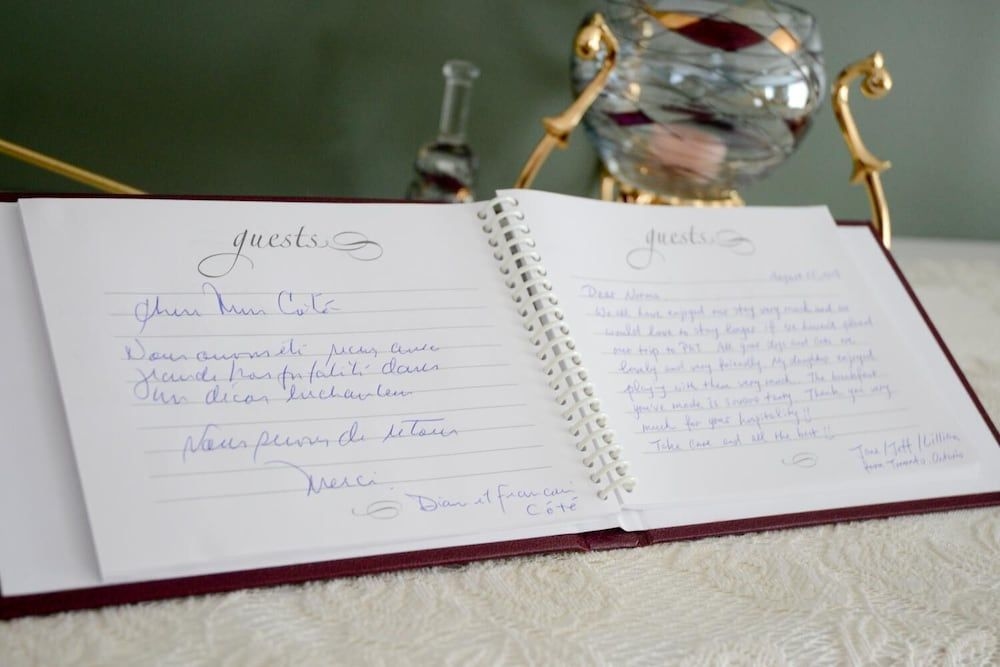 guests
Mme Côté
Nous avons été reçus avec
grande hospitalité dans
un décor enchanteur
Nous de retour
Merci.
Dian et français
Côté
guests
August
Dear Norma
We all have enjoyed our stay very much and we
would love to stay longer if we haven't planed
our trip to PEI. All your dogs and cats are
lovely and very friendly. My daughter enjoyed
playing with them very much. The breakfast
you've made is soooo tasty. Thank you very
much for your hospitality!!
Take care and all the best!!
Jane/Jeff/Lillian
from Toronto, Ontario